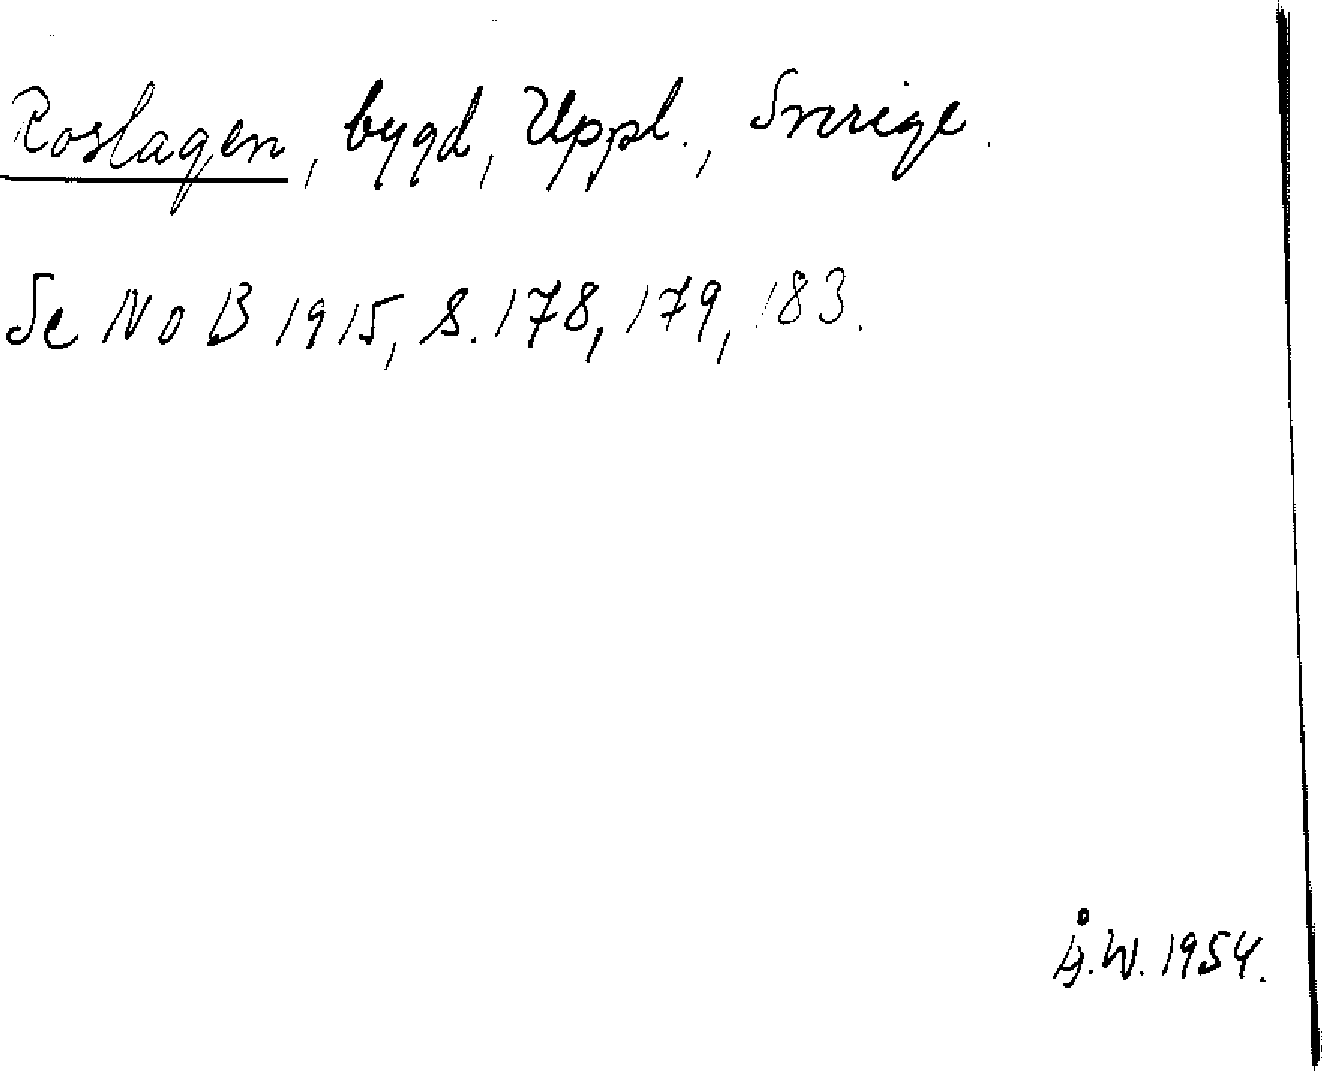 Roslagen, bygd, Uppl., Sverige.
Se NoB 1915, S. 178, 179, 183.
Å.W. 1954.